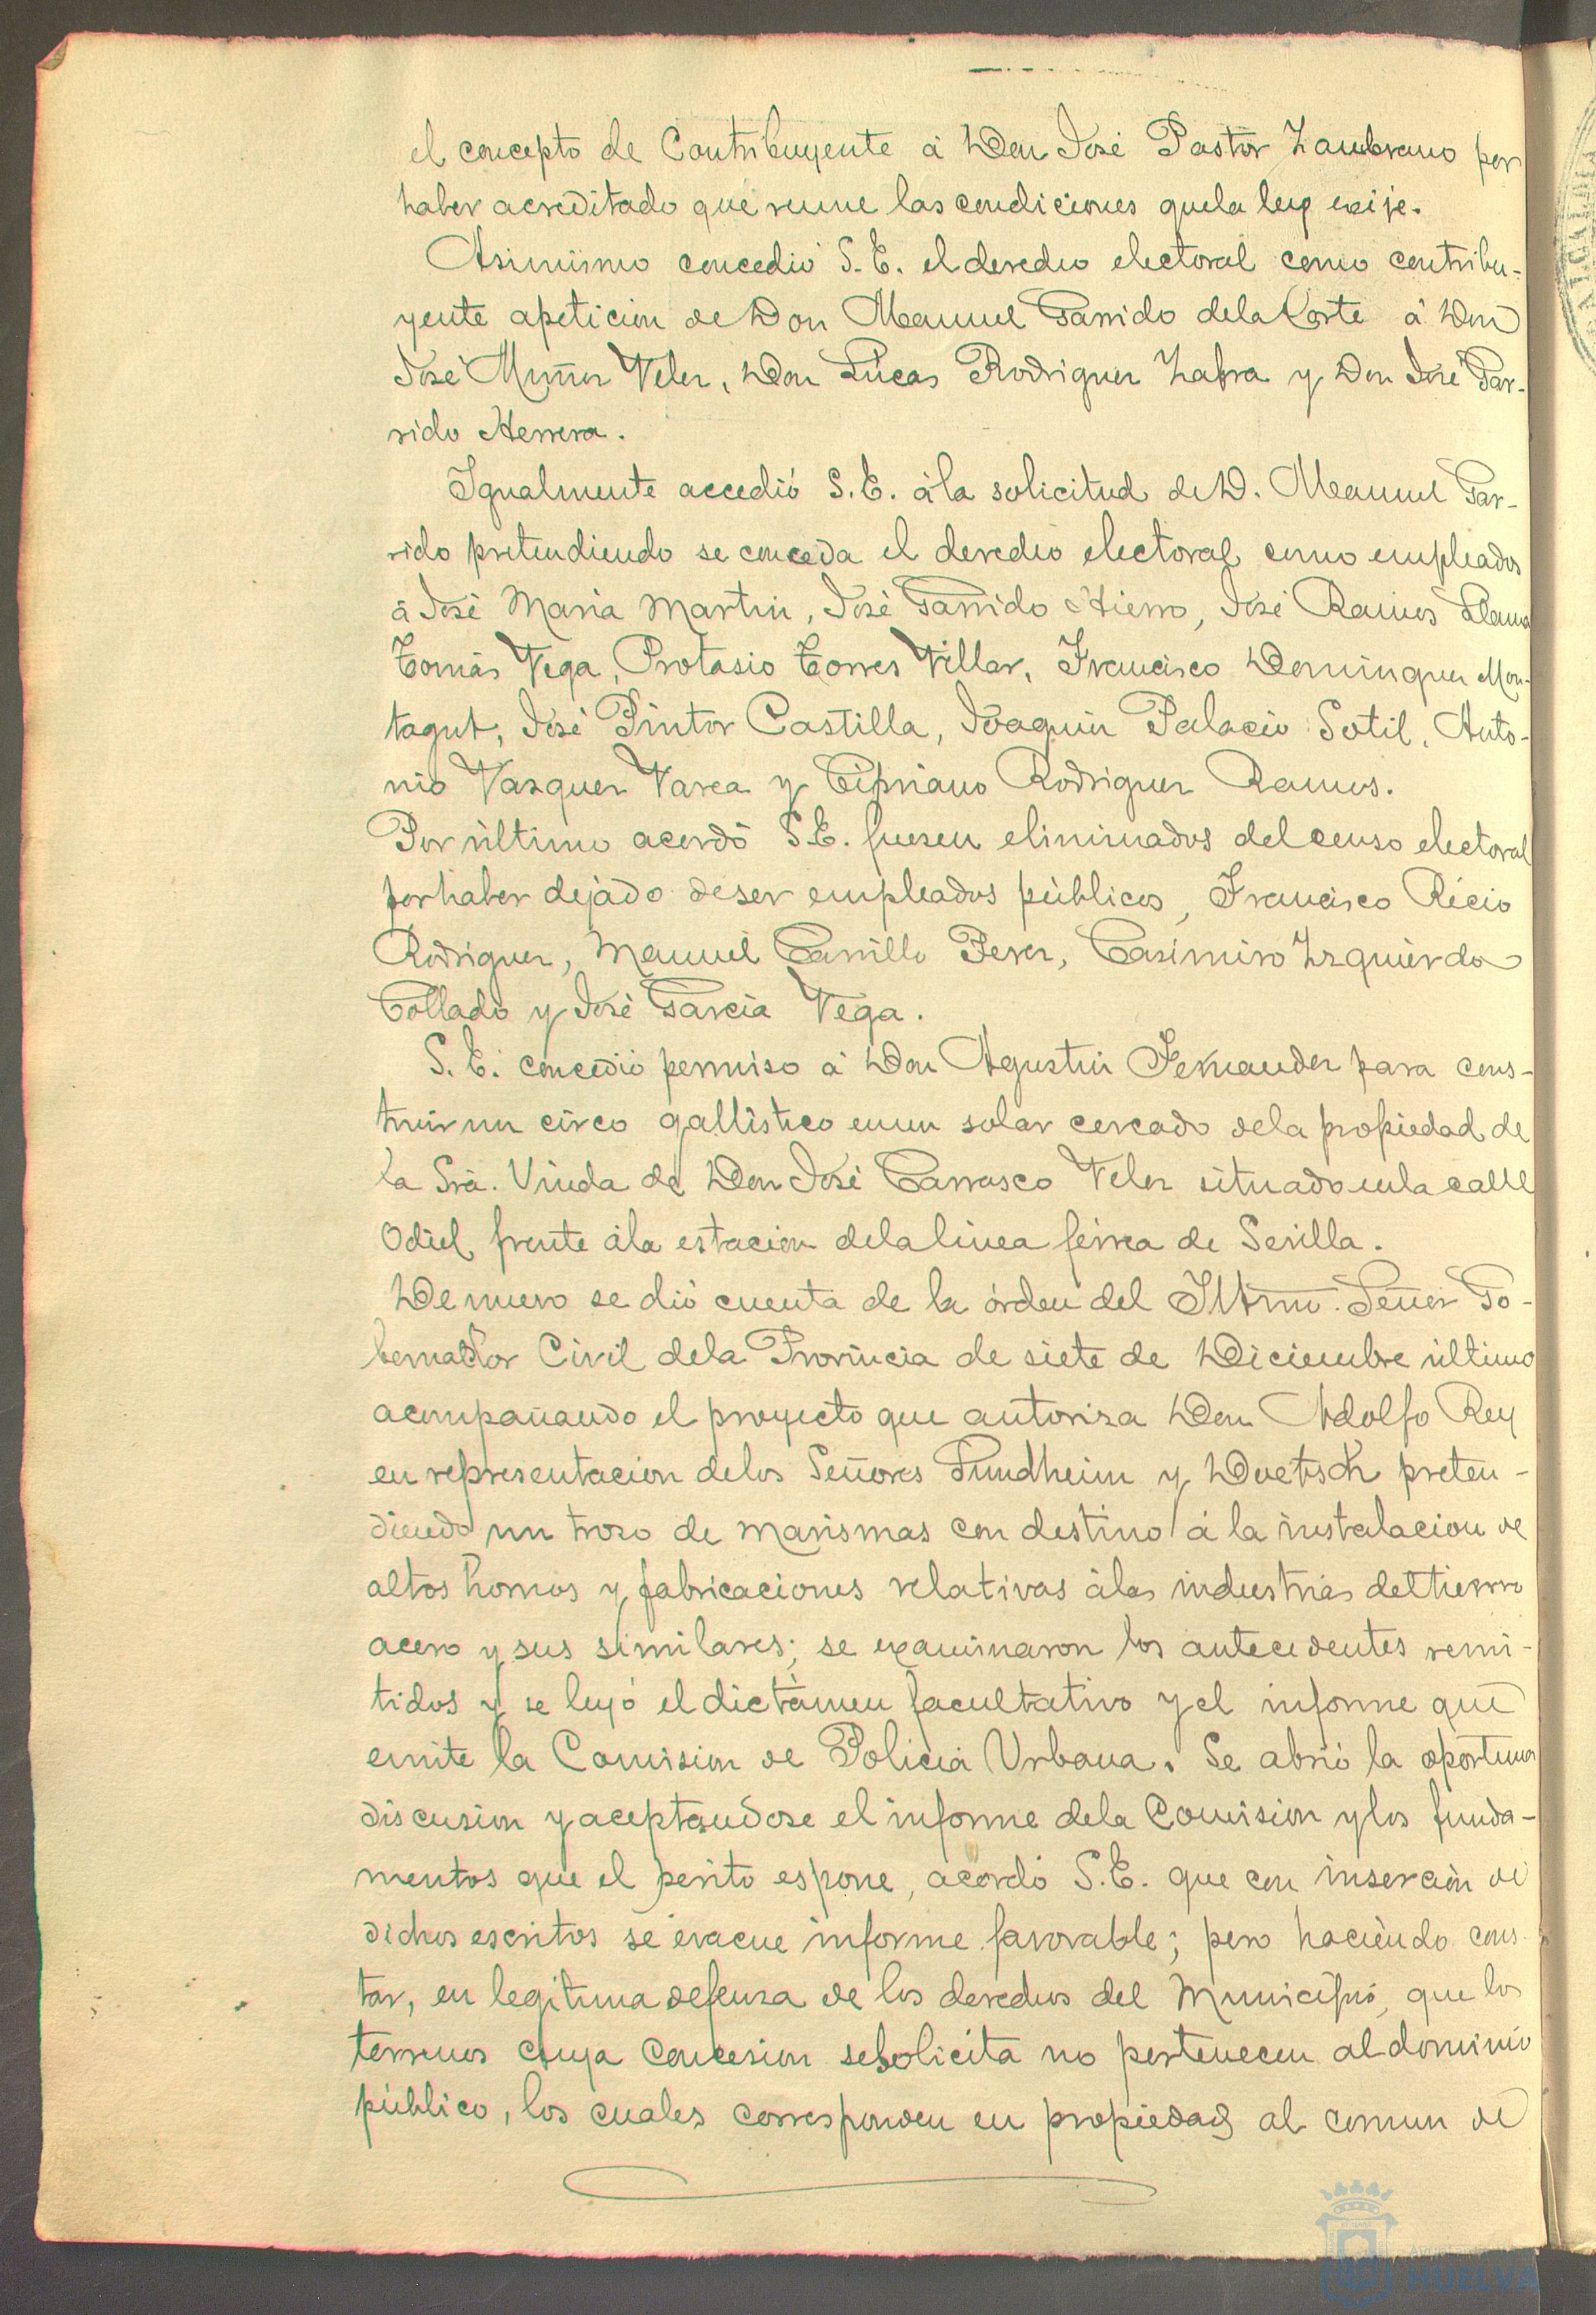 el concepto de Contribuyente á Don José Pastor Zambrano por
haber acreditado que reune las condiciones que la ley exije.
Asimismo concedió S. E. el derecho electoral como contribu-
yente a peticion de Don Manuel Garrido de la Corte á Don
José Muñoz Velez, Don Lúcas Rodriguez Zafra y Don José Gar-
rido Herrera.
Igualmente accedió S. E. á la solicitud de D. Manuel Gar-
rido pretendiendo se conceda el derecho electoral como empleados
á José Maria Martin, José Garrido Hierro, José Ramos Llama
Tomás Vega, Protasio Torres Villar, Francisco Dominguez Mon-
tagut, José Pintor Castilla, Joaquin Palacio Sotil, Anto-
nio Vazquez Varea y Cipriano Rodriguez Ramos.
Por último acordó S. E. fuesen eliminados del censo electoral
por haber dejado de ser empleados públicos, Francisco Récio
Rodriguez, Manuel Carrillo Perez, Casimiro Izquierdo
Collado y José Garcia Vega.
S. E. concedió permiso á Don Agustin Fernandez para cons-
truir un circo gallístico en un solar cercado de la propiedad de
la Sra. Viuda de Don José Carrasco Velez situado en la calle
Odiel frente á la estacion de la linea férrea de Sevilla.
De nuevo se dió cuenta de la órden del Iltmo. Señor Go-
bernador Civil de la Provincia de siete de Diciembre último
acompañando el proyecto que autoriza Don Adolfo Rey
en representacion de los Señores Sundheim y Doetsch preten-
diendo un trozo de marismas con destino á la instalacion de
altos hornos y fabricaciones relativas á las industrias del hierro
acero y sus similares; se examinaron los antecedentes remi-
tidos y se leyó el dictámen facultativo y el informe que
emite la Comision de Policia Urbana. Se abrió la oportuna
discusion y aceptandose el informe de la Comision y los funda-
mentos que el perito espone, acordó S. E. que con insercion de
dichos escritos se evacue informe favorable; pero haciendo cons-
tar, en legitima defensa de los derechos del Municipio, que los
terrenos cuya concesion se solicita no pertenecen al dominio
público, los cuales corresponden en propiedad al comun de
HUELVA